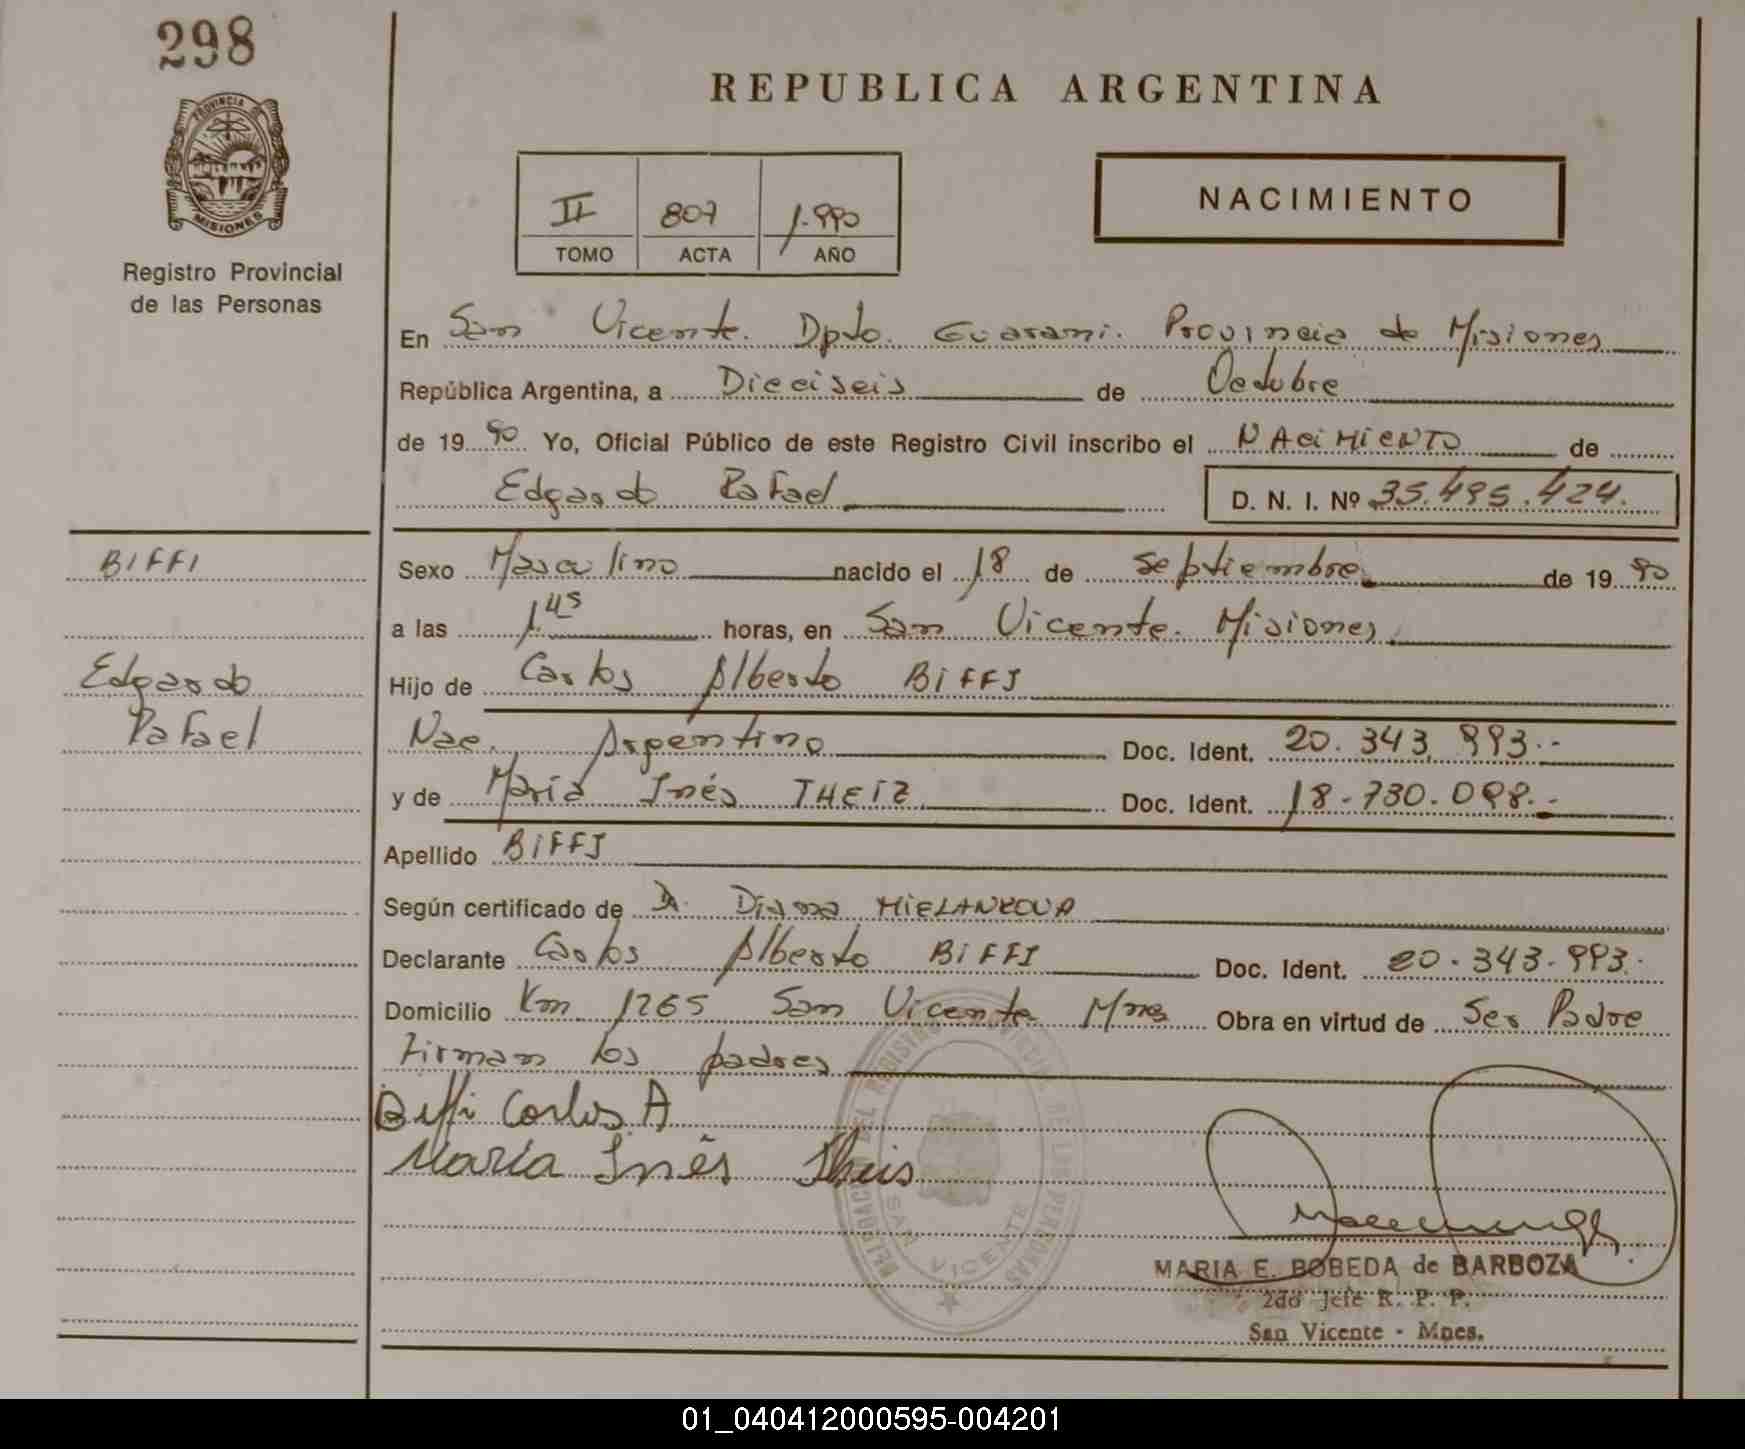 298
PROVINCIA
MISIONES
Registro Provincial
de las Personas
REPUBLICA ARGENTINA
II 807 1.990
TOMO ACTA AÑO
NACIMIENTO
En San Vicente. Dpto. Guarani. Provincia de Misiones
República Argentina, a Dieciseis de Octubre
de 1990 Yo, Oficial Público de este Registro Civil inscribo el NACIMIENTO de
Edgardo Rafael D. N. I. Nº 35.495.424.
BIFFI
Edgardo
Rafael
Sexo Masculino nacido el 18 de septiembre de 1990
a las 1.45 horas, en San Vicente. Misiones
Hijo de Carlos Alberto BIFFI
Nac. Argentino Doc. Ident. 20.343.993.-
y de María Inés THEIZ Doc. Ident. 18-730.098.-
Apellido BIFFI
Según certificado de Dr. Diana MIELANKOVA
Declarante Carlos Alberto BIFFI Doc. Ident. 20.343.993.
Domicilio Km 1265 San Vicente Mnes Obra en virtud de Ser Padre
Firman los padres
Biffi Carlos A
María Inês Theis
DELEGACION DEL REGISTRO PROVINCIAL DE LAS PERSONAS
SAN VICENTE
MARIA E. BOBEDA de BARBOZA
2do Jefe R. P. P.
San Vicente - Mnes.
01_040412000595-004201